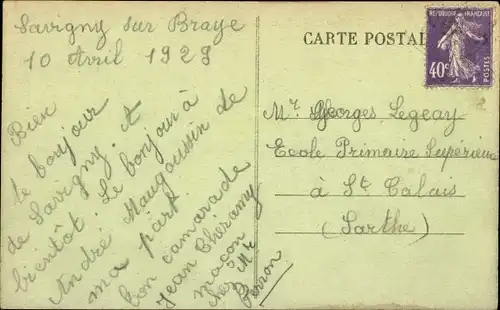 Savigny sur Braye
10 Avril 1929
Bien
le bonjour
de Savigny. et
bientôt. Le bonjour à
André Maugoussin de
ma part.
ton camarade
Jean Chéramy
maçon
chez Mr
Perron
CARTE POSTAL
REPUBLIQUE FRANÇAISE
40c
POSTES
Mr Georges Legeay
Ecole Primaire Supérieure
à St Calais
(Sarthe)